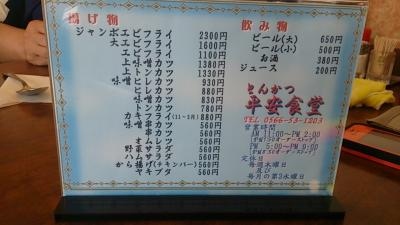 揚げ物
ジャンボエビフライ 2300円
大エビフライ 1600円
エビフライ 1100円
上味噌カツ 1380円
上トンカツ 1330円
味噌ヒレカツ 930円
ヒレカツ 880円
味噌カツ 830円
トンカツ 780円
カキフライ(11~3月) 880円
味噌串カツ 560円
串カツ 560円
オムレツ 560円
野菜サラダ 560円
ハムサラダ 560円
から揚げ(チキンバー) 560円
ヤキブタ 560円
飲み物
ビール(大) 650円
ビール(小) 500円
お酒 380円
ジュース 200円
とんかつ
平安食堂
TEL 0566-53-1203
営業時間
AM 11:00~PM 2:00
PM 5:00~PM 9:00
定休日
毎週木曜日
及び
毎月の第3水曜日